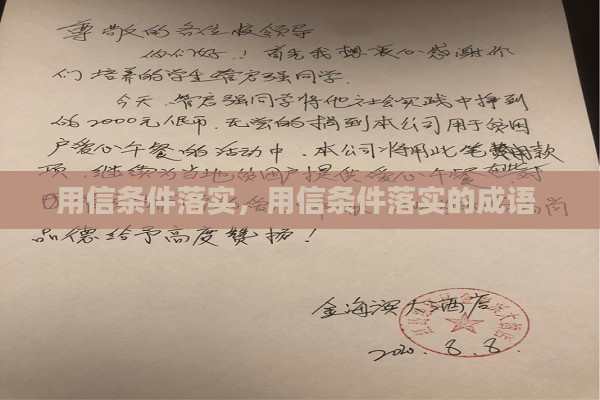 尊敬的各位校领导
你们好！首先我想衷心感谢你
们培养的学生管启强同学.
今天,管启强同学将他社会实践中挣到
的2000元人民币,无偿的捐到本公司用于贫困
户爱心午餐的活动中.本公司将用此笔款
项,继续为当地贫困户提供爱心午餐
用信条件落实，用信条件落实的成语
品德给予高度赞扬！
金海湾大酒店
2020.8.8.